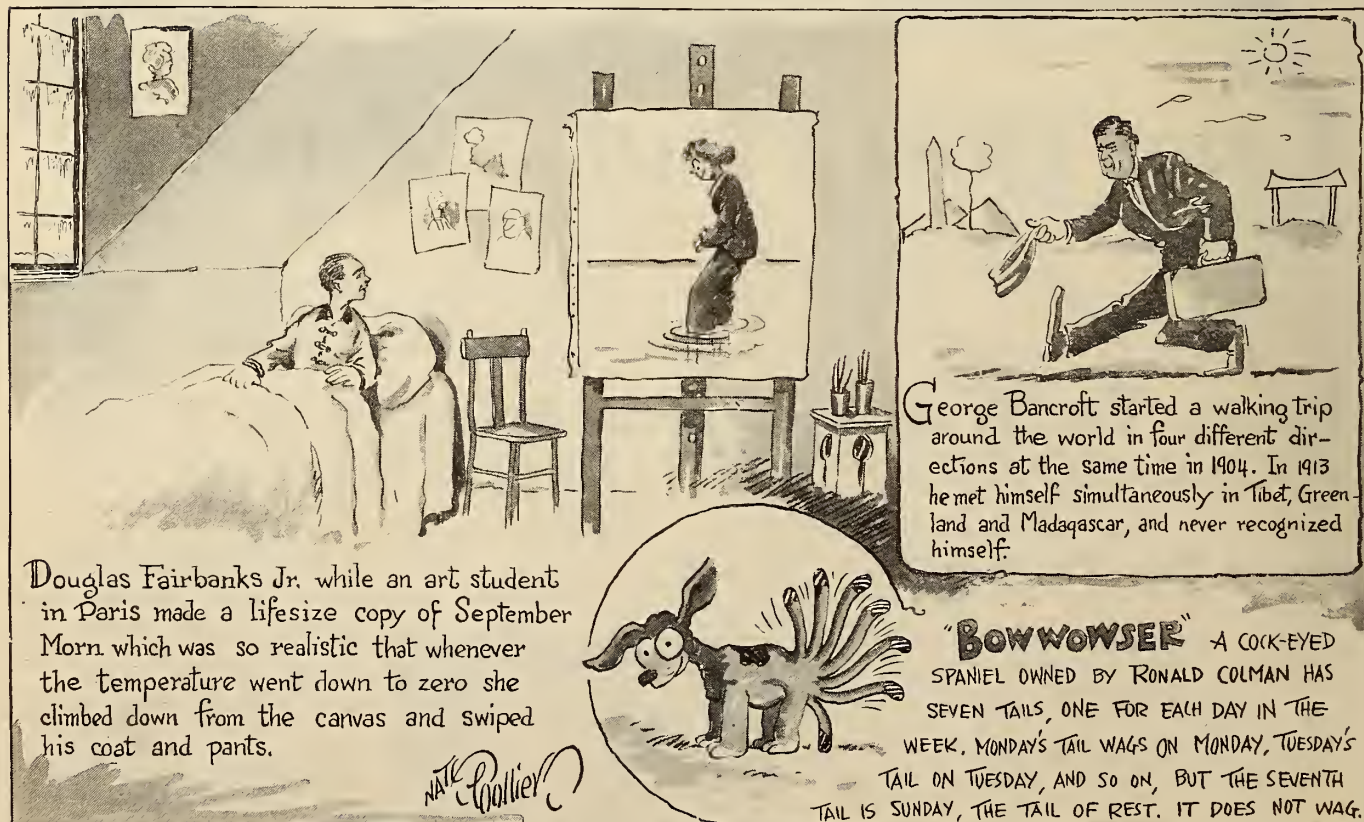 Douglas Fairbanks Jr. while an art student
in Paris made a lifesize copy of September
Morn which was so realistic that whenever
the temperature went down to zero she
climbed down from the canvas and swiped
his coat and pants.
NATE Collier
George Bancroft started a walking trip
around the world in four different dir-
ections at the same time in 1904. In 1913
he met himself simultaneously in Tibet, Green-
land and Madagascar, and never recognized
himself.
"BOWWOWSER" A COCK-EYED
SPANIEL OWNED BY RONALD COLMAN HAS
SEVEN TAILS, ONE FOR EACH DAY IN THE
WEEK. MONDAY'S TAIL WAGS ON MONDAY, TUESDAY'S
TAIL ON TUESDAY, AND SO ON, BUT THE SEVENTH
TAIL IS SUNDAY, THE TAIL OF REST. IT DOES NOT WAG.